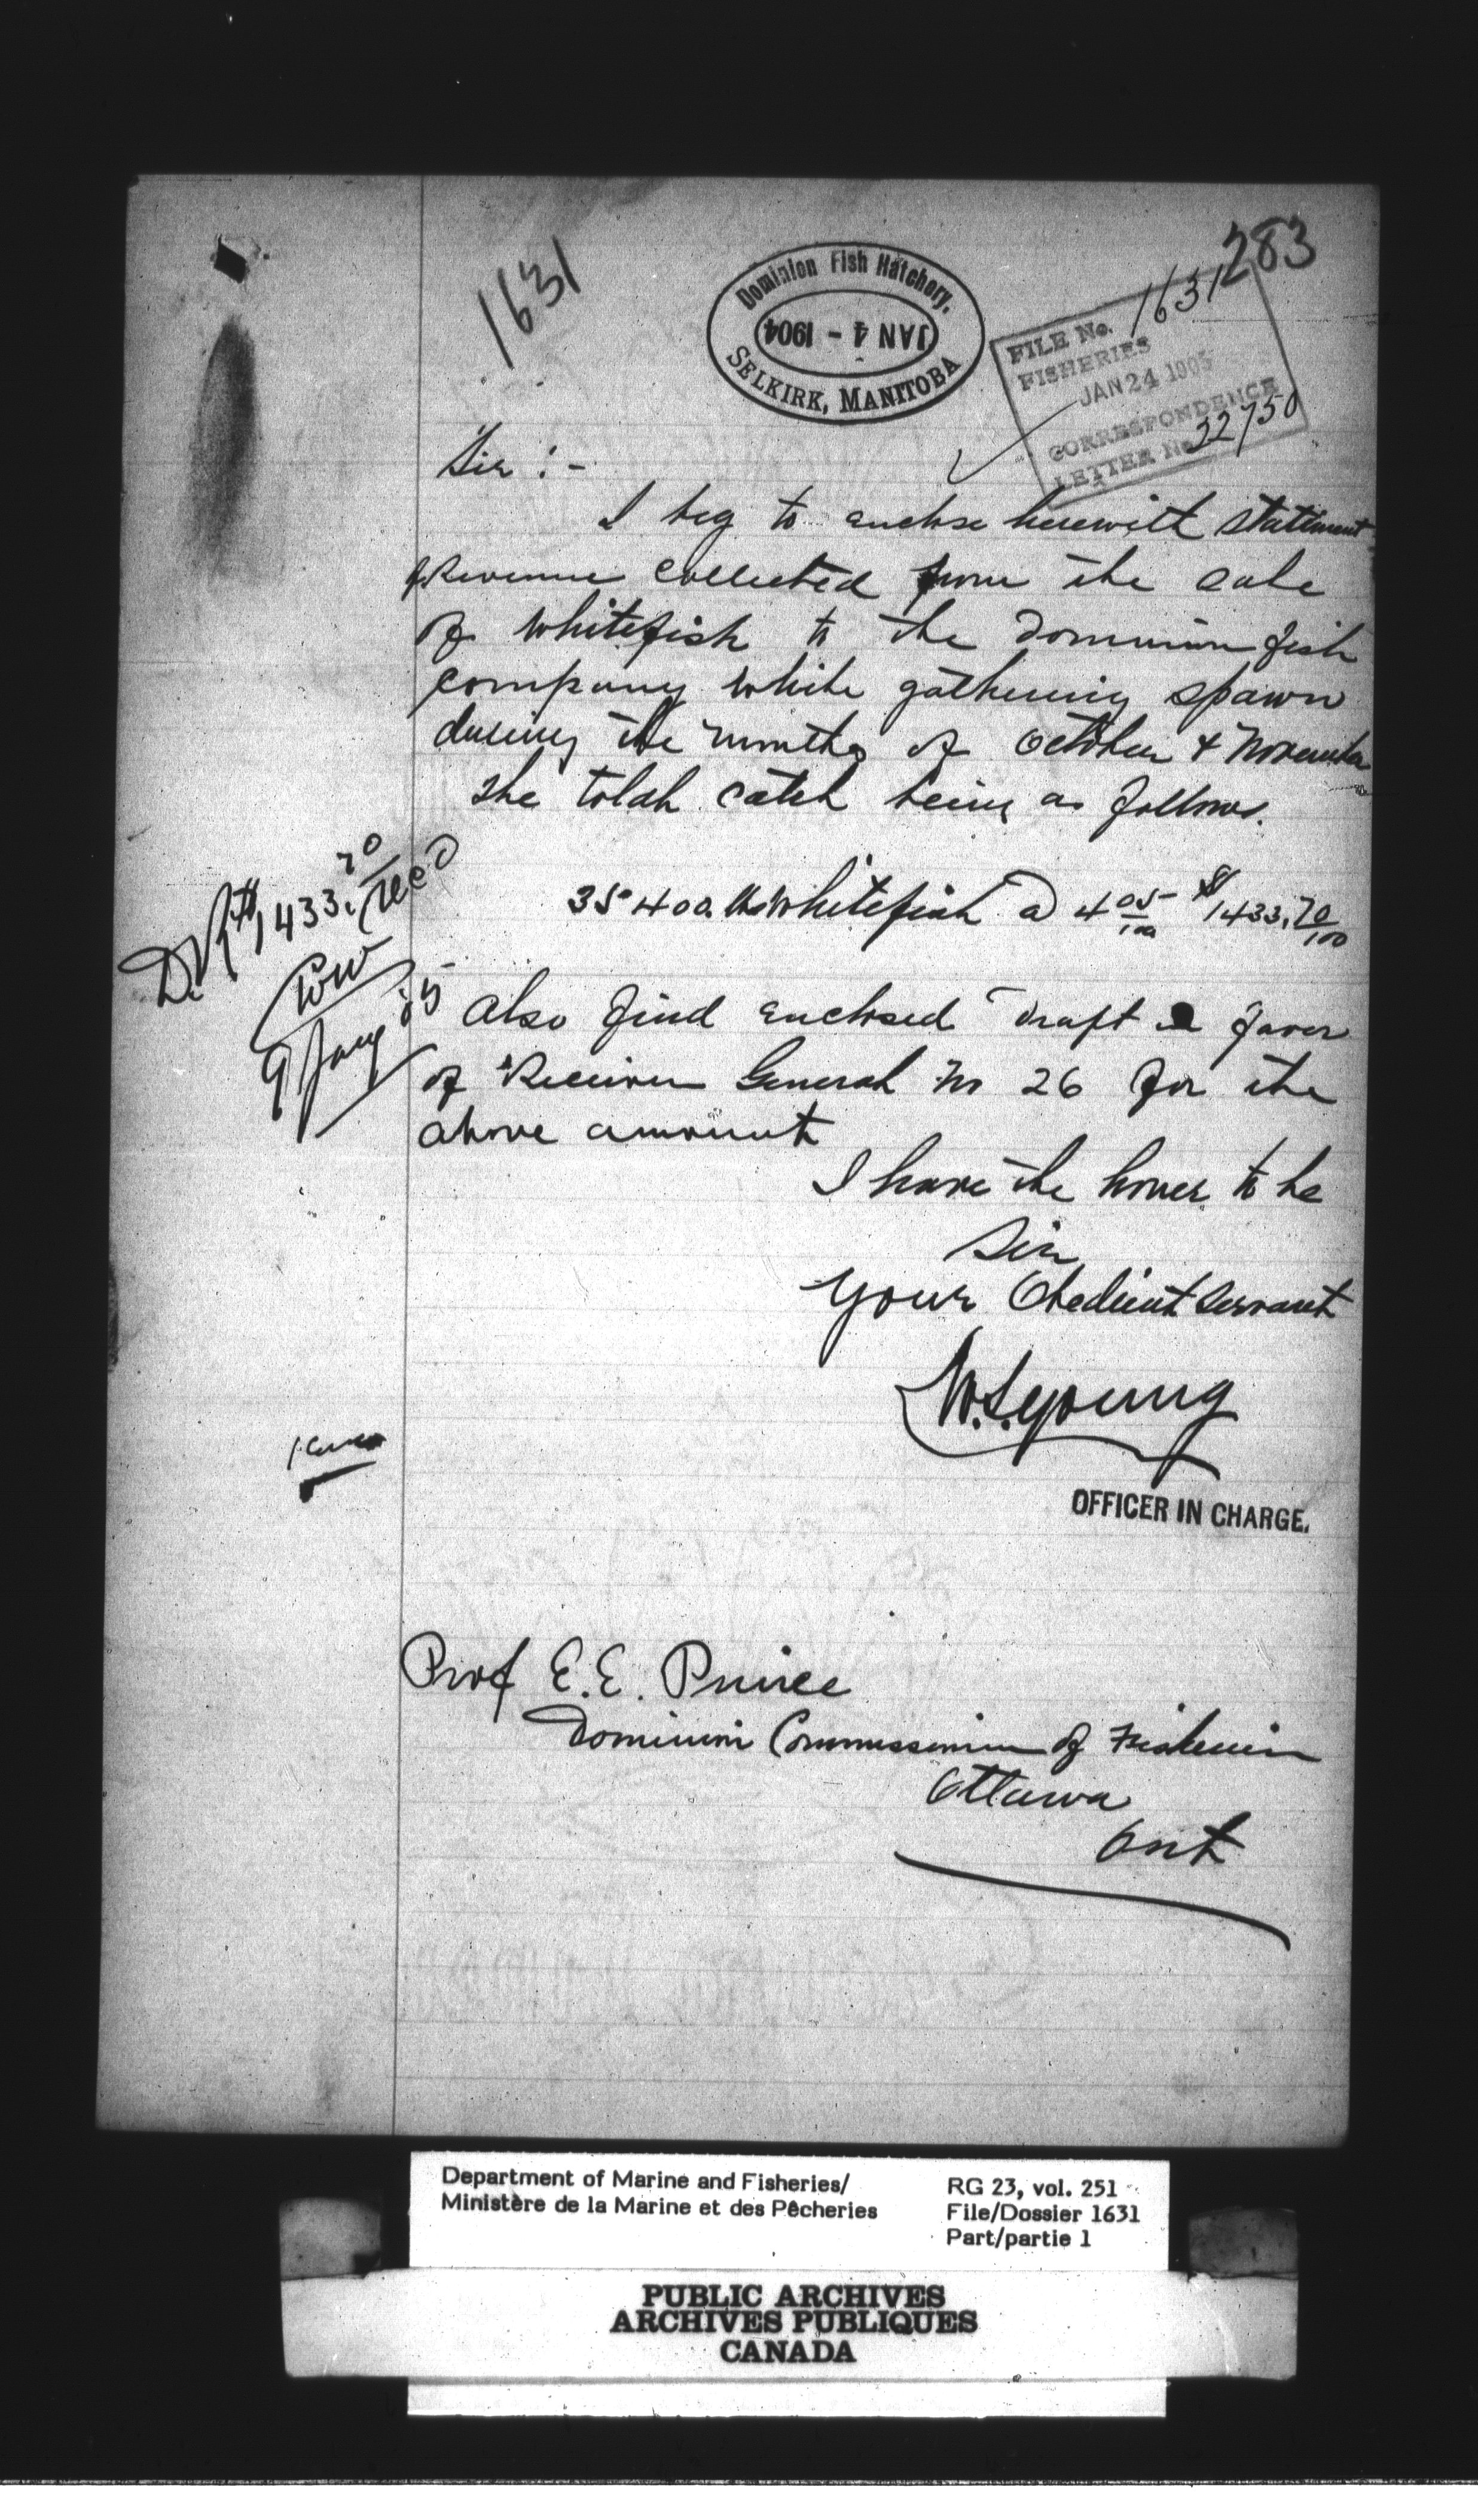 283
1631
Dominion Fish Hatchery.
JAN 4 - 1904
SELKIRK, MANITOBA
FILE No. 1631
FISHERIES
JAN 24 1905
CORRESPONDENCE
LETTER No. 32750
Sir :-
I beg to enclose herewith statement
of Revenue collected from the sale
of whitefish to the Dominion fish
company while gathering spawn
during the months of October & November
The totah catch being as follows.
35400 lbs Whitefish @ 4 05/100 $1433.70/100
D. Dft $1,433.70 rec'd
9 Jany 05
Also find enclosed draft in favor
of Receiver General No 26 for the
above amount
I have the honer to be
Sir
Your Obedient Servant
W.S. Young
OFFICER IN CHARGE.
Prof E.E. Prince
Dominion Commissioner of Fisheries
Ottawa
Ont
Department of Marine and Fisheries/
Ministère de la Marine et des Pêcheries
RG 23, vol. 251
File/Dossier 1631
Part/partie 1
PUBLIC ARCHIVES
ARCHIVES PUBLIQUES
CANADA